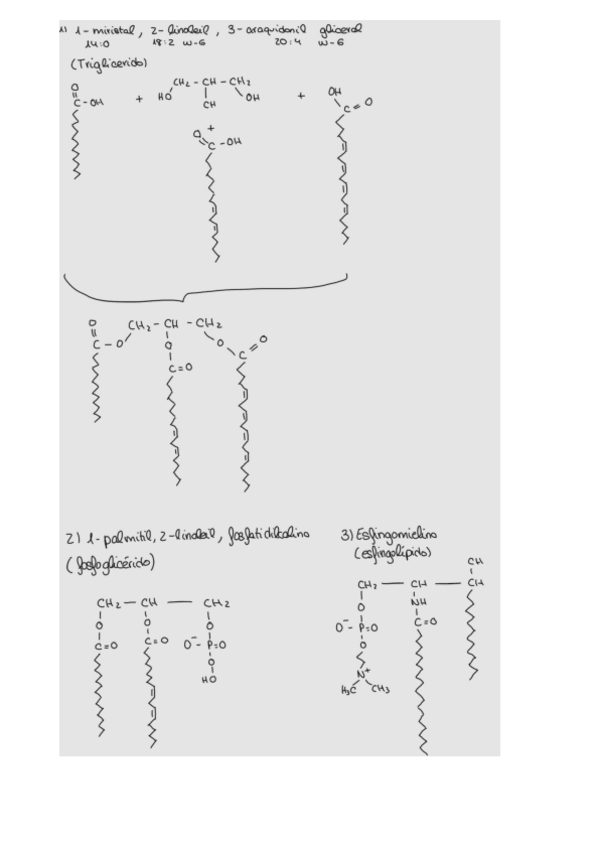 1) 1-miristal, 2-linoleil, 3-araquidonil glicerol
14:0 18:2 w-6 20:4 w-6
(Triglicerido)
O
C-OH + HO CH2 - CH - CH2 OH + OH C=O
OH
+
O C-OH
O CH2 - CH - CH2 O
C-O O O C
C=O
2) 1-palmitil, 2-linoleil, fosfatidilcolina 3) Esfingomielina
(fosfoglicérido) (esfingolípido)
OH
CH2 — CH — CH
CH2 — CH — CH2 O NH
O O O O⁻-P=O C=O
C=O C=O O⁻-P=O O
O N+
HO H3C CH3